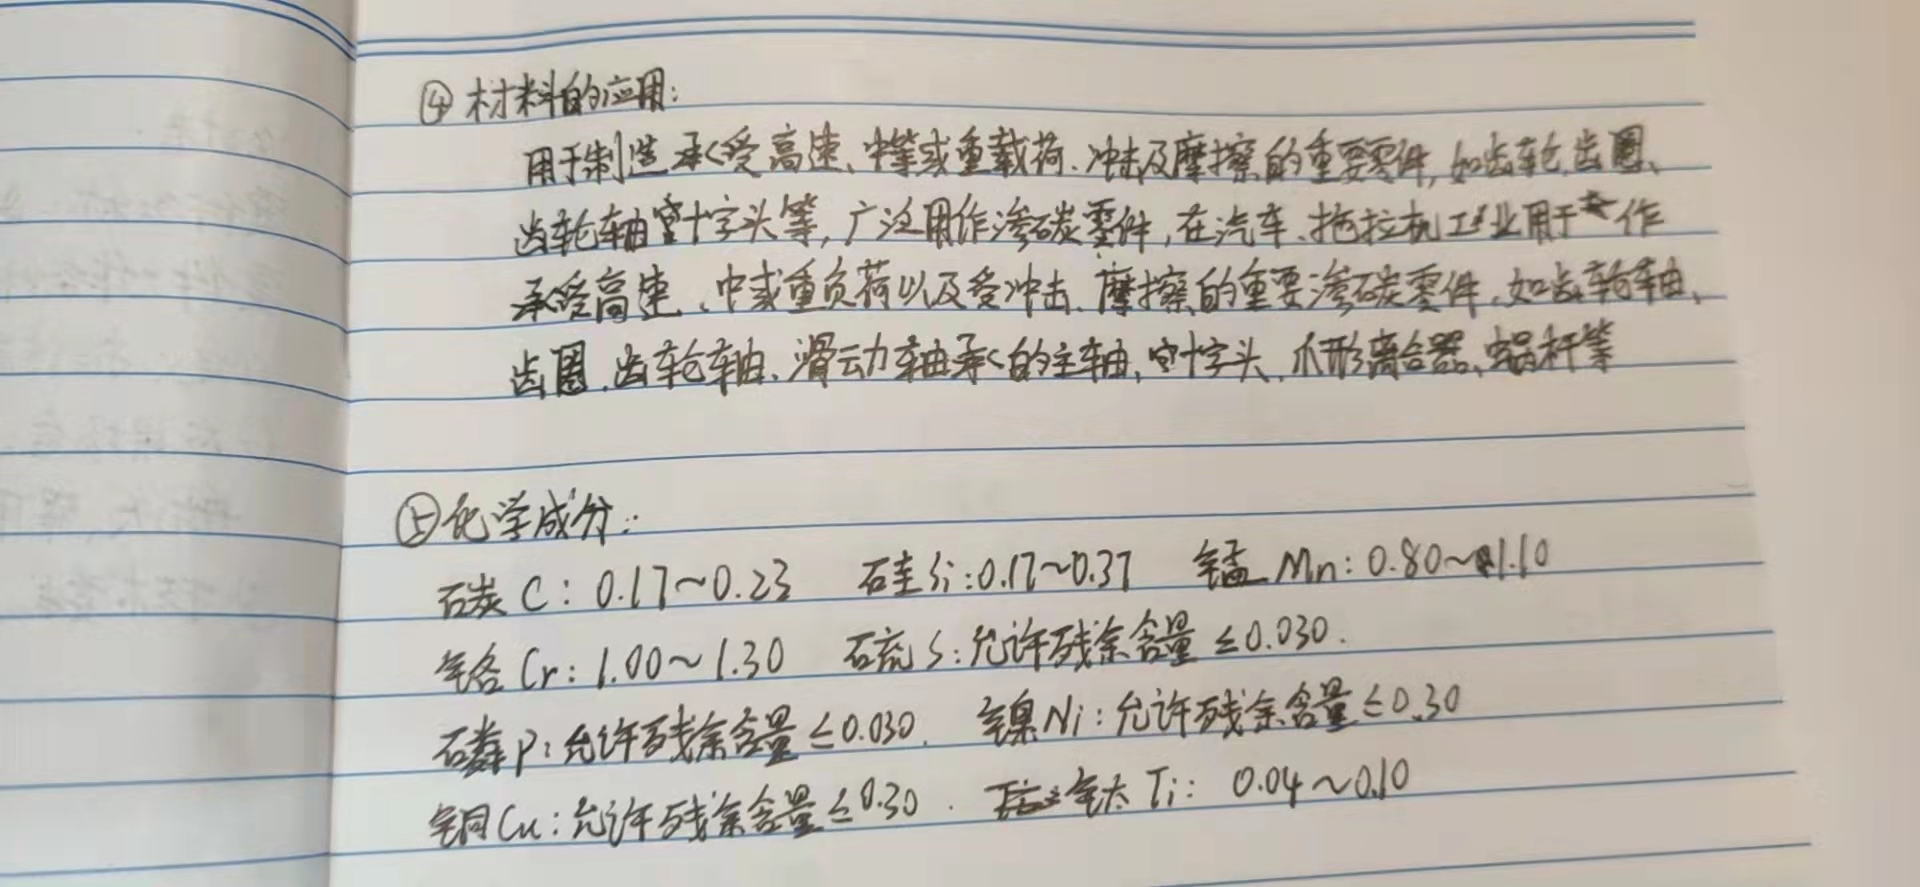 ④材料的应用:
用于制造承受高速、中等或重载荷、冲击及摩擦的重要零件,如齿轮、齿圈、
齿轮轴十字头等,广泛用作渗碳零件,在汽车、拖拉机工业用于作
承受高速、中或重负荷以及受冲击、摩擦的重要渗碳零件,如齿轮轴、
齿圈、齿轮轴、滑动轴承的主轴、十字头、爪形离合器、蜗杆等
⑤化学成分:
碳C:0.17~0.23 硅Si:0.17~0.37 锰Mn:0.80~1.10
铬Cr:1.00~1.30 硫S:允许残余含量≤0.030.
磷P:允许残余含量≤0.030. 镍Ni:允许残余含量≤0.30
铜Cu:允许残余含量≤0.30. 钛Ti: 0.04~0.10